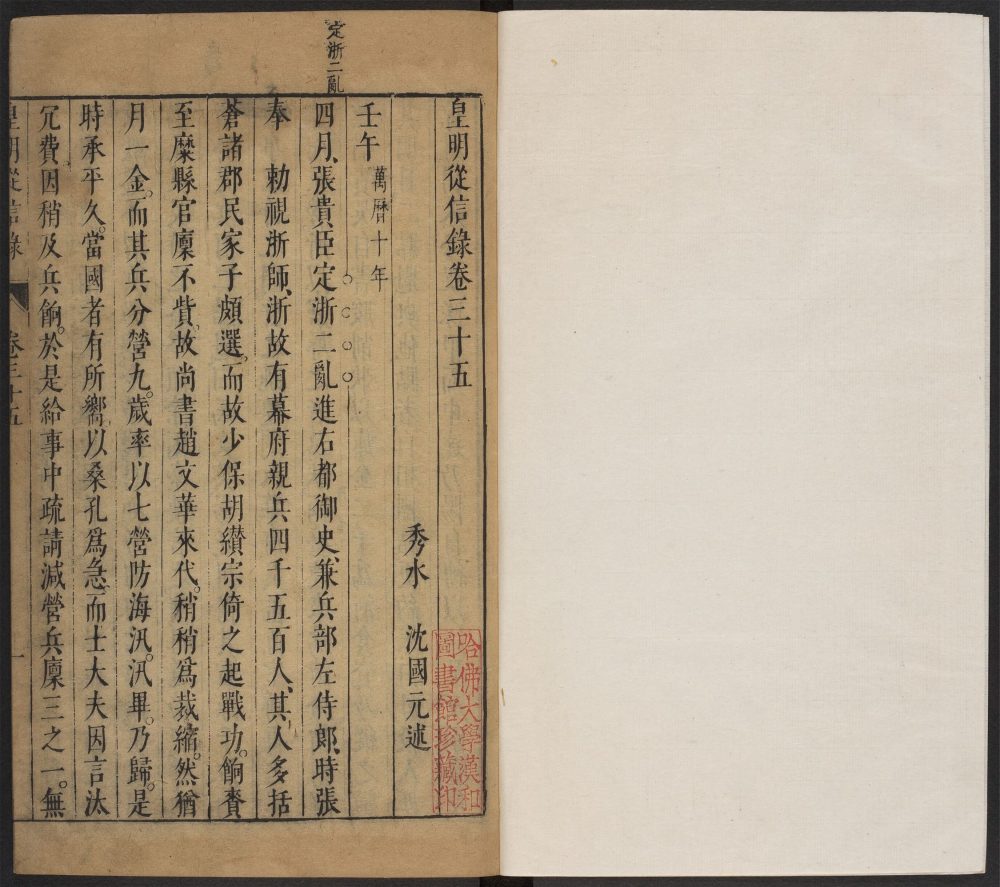 定浙二亂
皇明從信錄卷三十五
秀水　沈國元述
壬午　萬曆十年
四月、張貴臣定浙二亂進右都御史、兼兵部左侍郎、時張
奉　勅視浙師、浙故有幕府親兵四千五百人、其人多括
蒼諸郡民家子頗選。而故少保胡纘宗倚之起戰功。餉賚
至糜縣官廩不貲。故尚書趙文華來代。稍稍爲裁縮。然猶
月一金。而其兵分營九。歲率以七營防海汛。汛畢。乃歸。是
時承平久。當國者有所嚮。以桑孔爲急。而士大夫因言汰
冗費因稍及兵餉。於是給事中疏請減營兵廩三之一。無
皇明從信錄　卷三十五　一
哈佛大學漢和
圖書館珍藏印